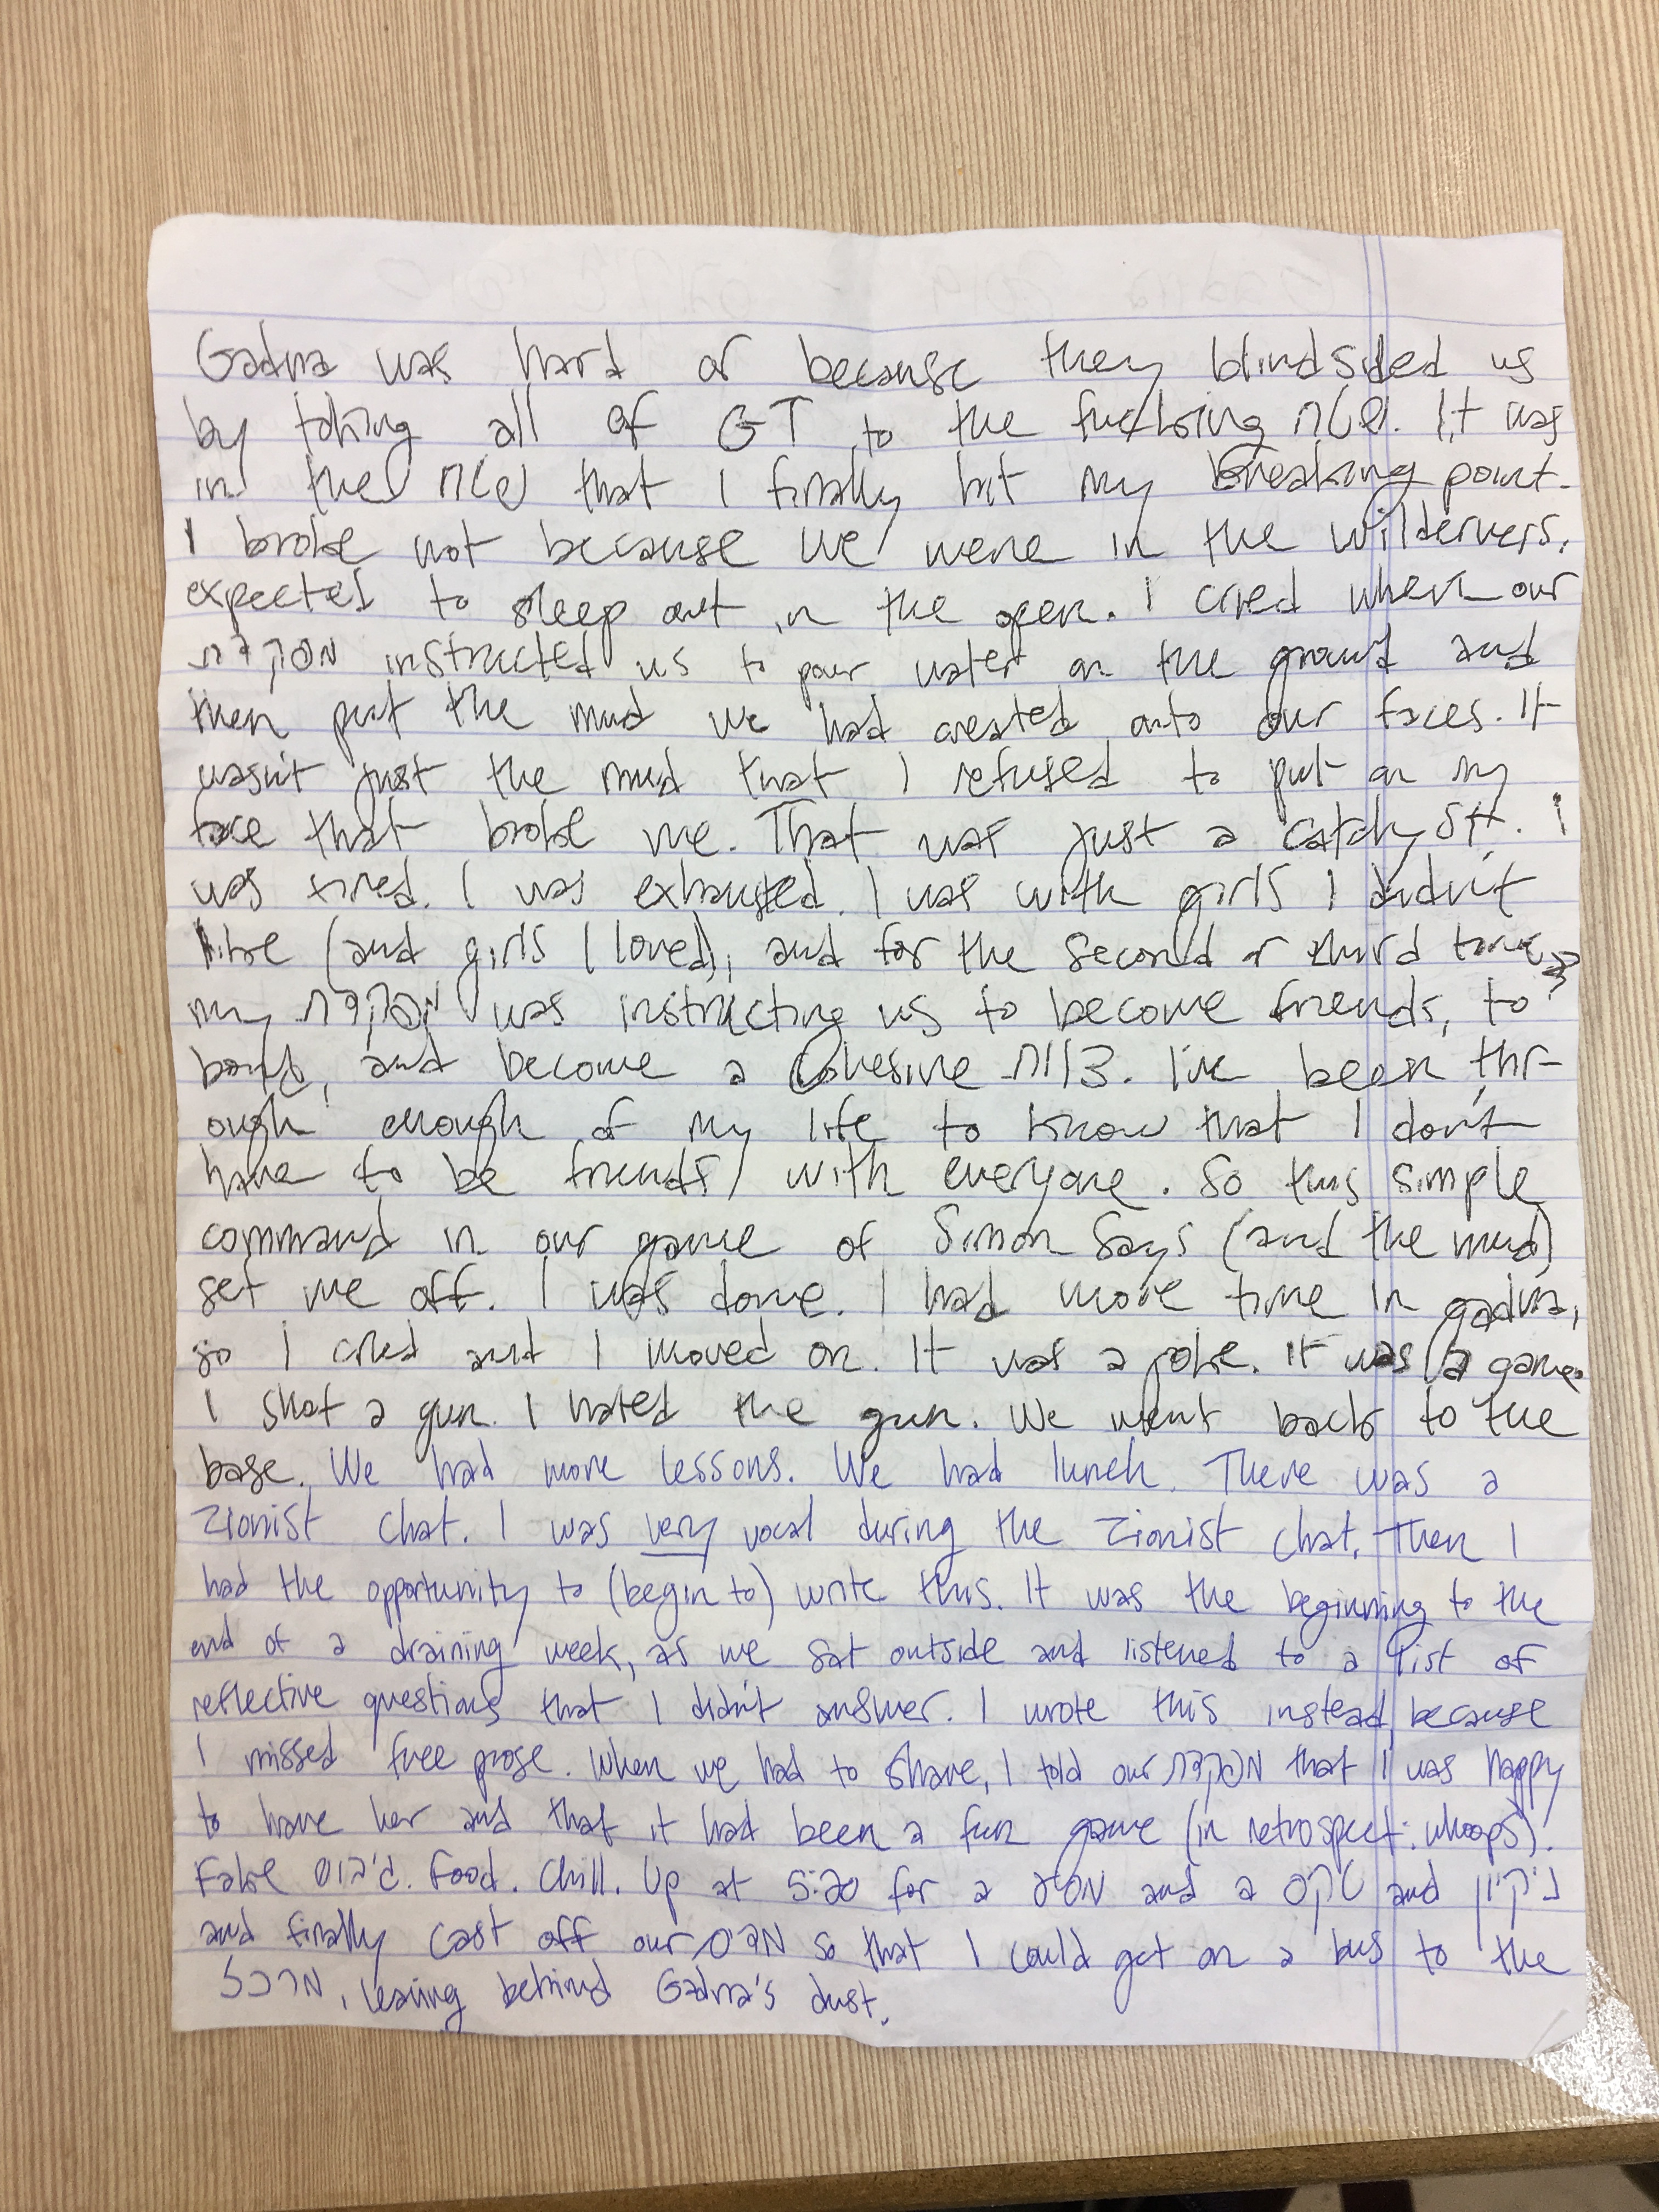 Gadna was hard af because they blindsided us
by taking all of GT to the fucking שטח. It was
in the שטח that I finally hit my breaking point.
I broke not because we were in the wilderness,
expected to sleep out in the open. I cried when our
מפקדת instructed us to pour water on the ground and
then put the mud we had created onto our faces. It
wasn't just the mud that I refused to put on my
face that broke me. That was just a catalyst. I
was tired. I was exhausted. I was with girls I didn't
like (and girls I loved), and for the second or third time
my מפקדת was instructing us to become friends, to
bond, and become a cohesive צוות. I've been thr-
ough enough of my life to know that I don't
have to be friends with everyone. So this simple
command in our game of Simon Says (and the mud)
set me off. I was done. I had more time in gadna,
so I cried and I moved on. It was a joke. It was a game.
I shot a gun. I hated the gun. We went back to the
base. We had more lessons. We had lunch. There was a
Zionist chat. I was very vocal during the Zionist chat. Then I
had the opportunity to (begin to) write this. It was the beginning to the
end of a draining week, as we sat outside and listened to a list of
reflective questions that I didn't answer. I wrote this instead because
I missed free prose. When we had to share, I told our מפקדת that I was happy
to have her and that it had been a fun game (in retrospect: whoops).
Fake גיבוש. Food. Chill. Up at 5:20 for a מסדר and a טקס and ניקיון
and finally cast off our מדים so that I could get on a bus to the
מרכז, leaving behind Gadna's dust.